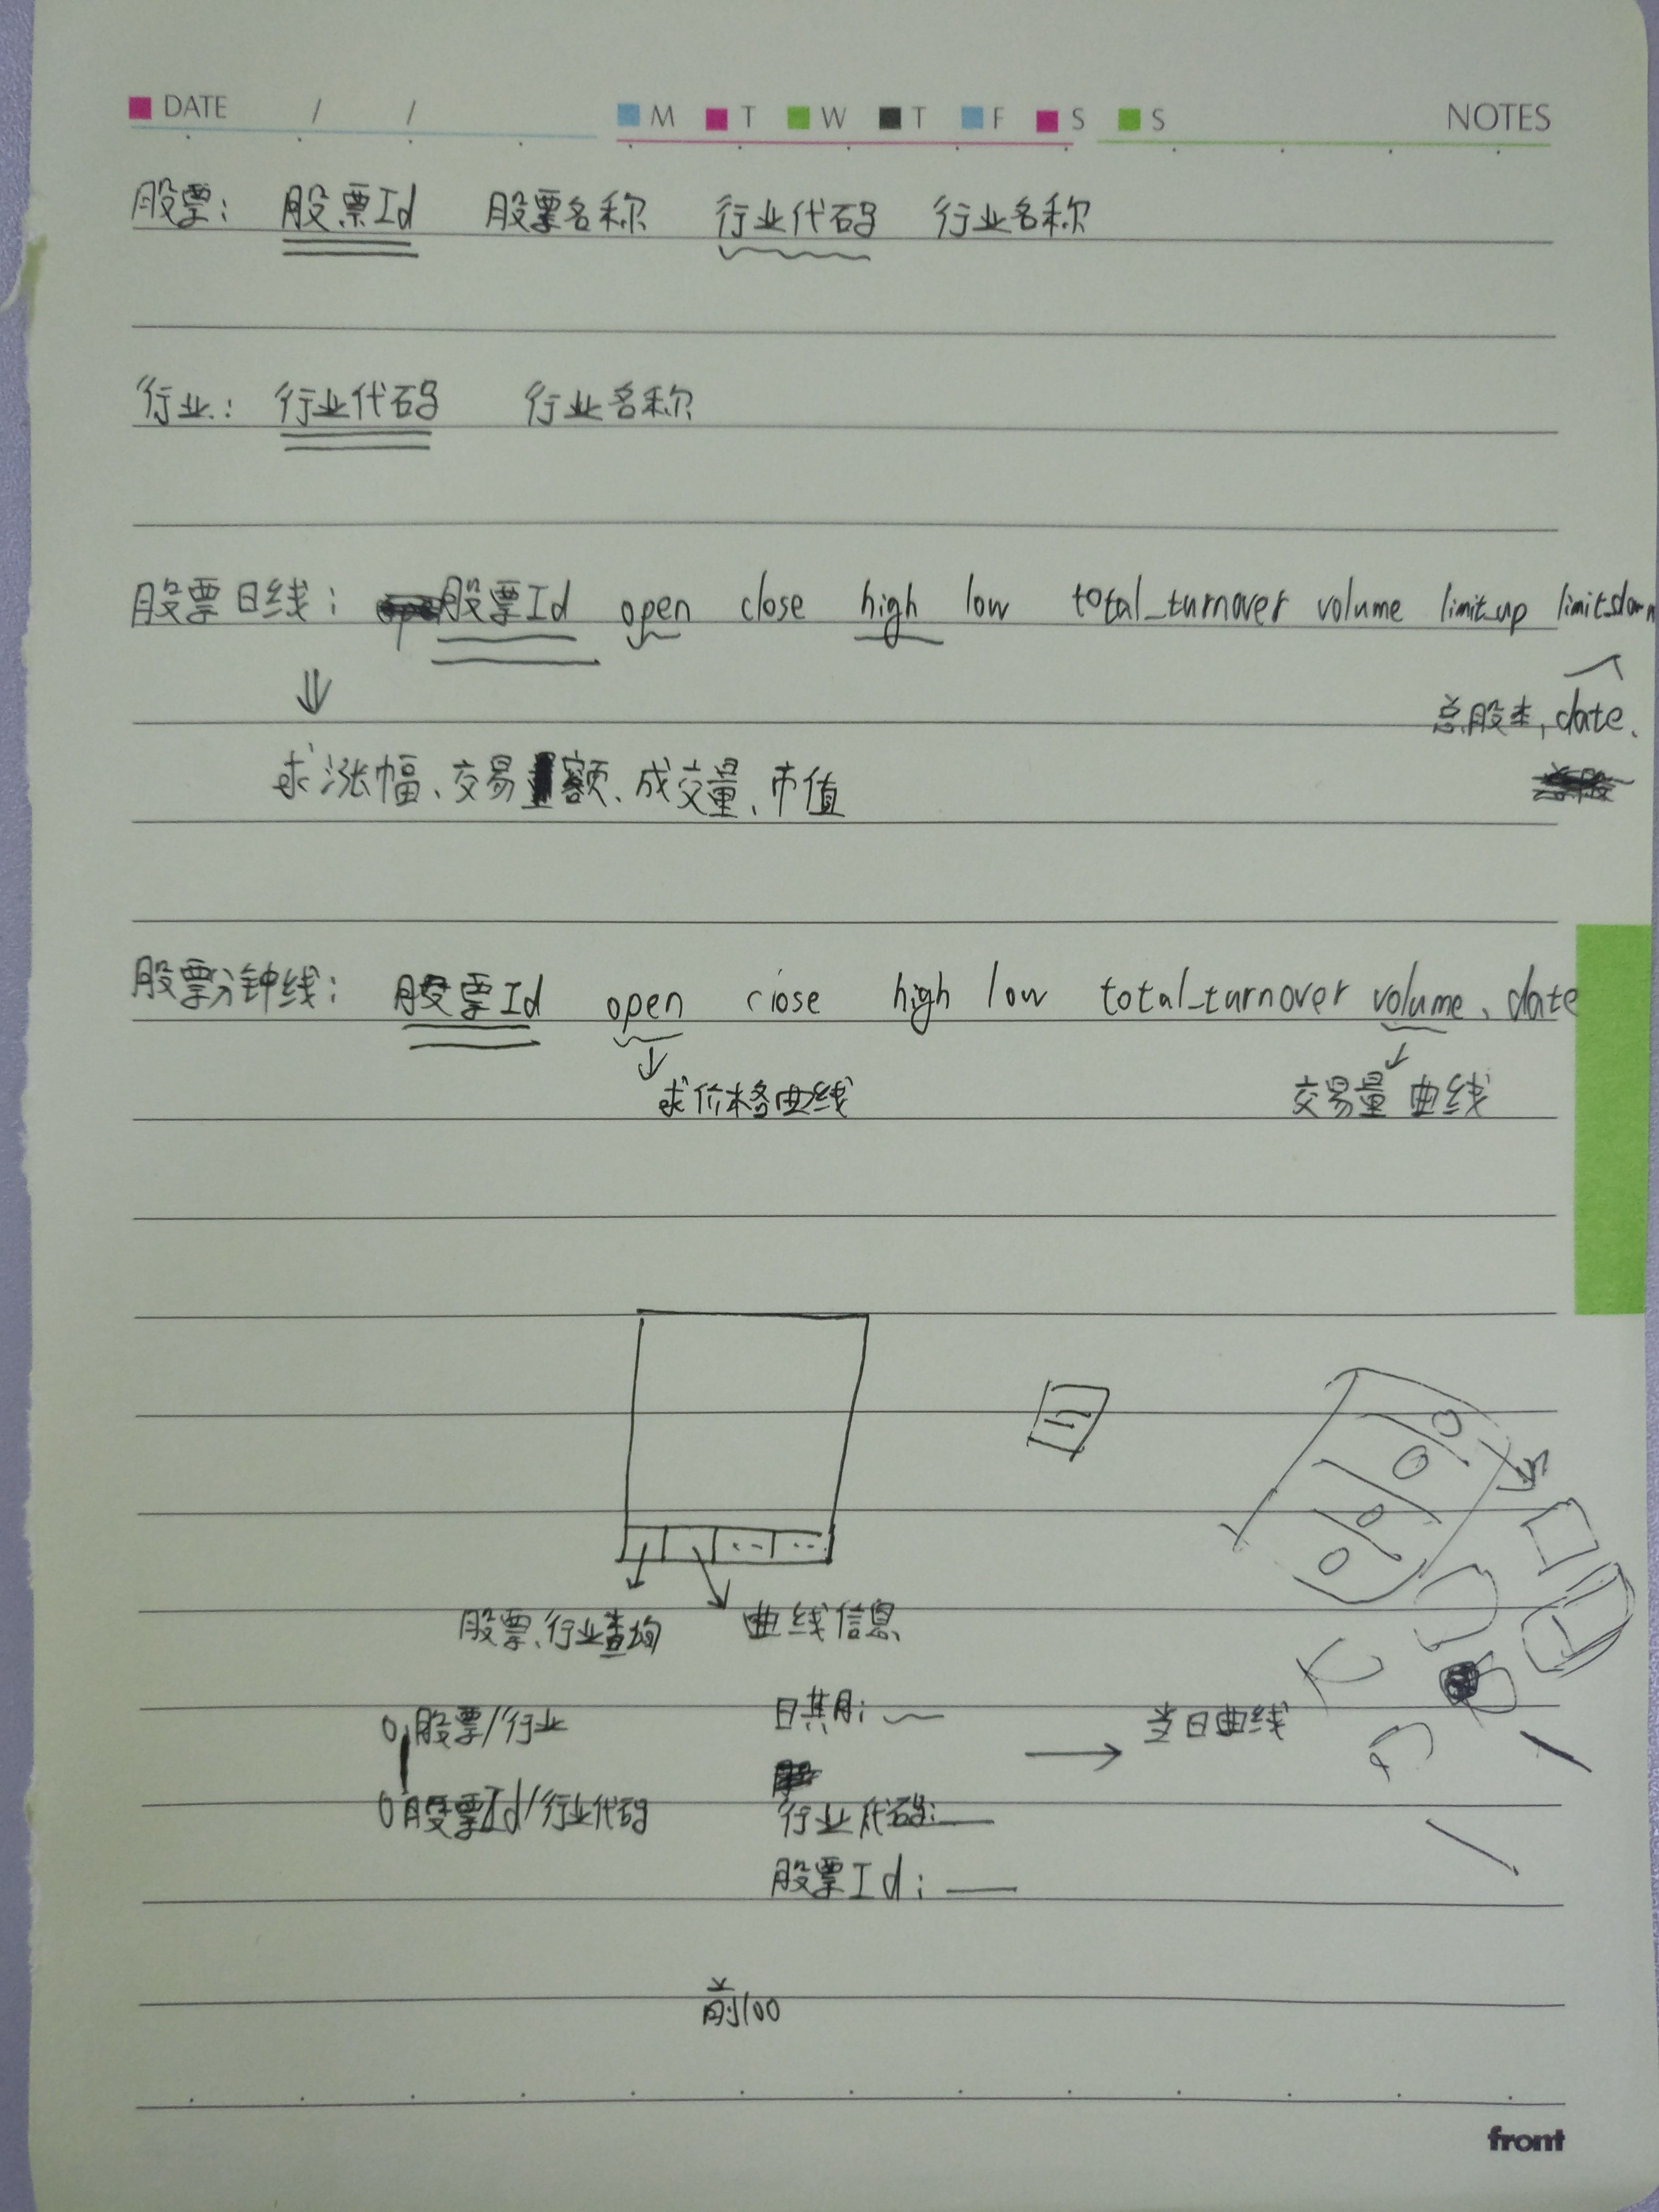 DATE / / M T W T F S S NOTES
股票: 股票Id 股票名称 行业代码 行业名称
行业: 行业代码 行业名称
股票日线: 股票Id open close high low total_turnover volume limit_up limit_down
总股本, date.
求涨幅、交易额、成交量、市值
股票分钟线: 股票Id open close high low total_turnover volume、date
求价格曲线 交易量曲线
股票、行业查询 曲线信息
股票/行业 日期: 当日曲线
股票Id/行业代码 行业代码:
股票Id:
前100
front